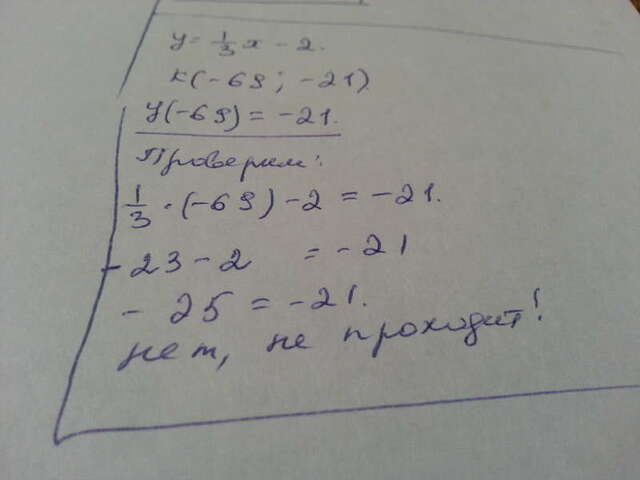 y = 1/3 x - 2.
K(-69; -21)
y(-69) = -21.
Проверим:
1/3 · (-69) - 2 = -21.
-23 - 2 = -21
- 25 = -21.
нет, не проходит!